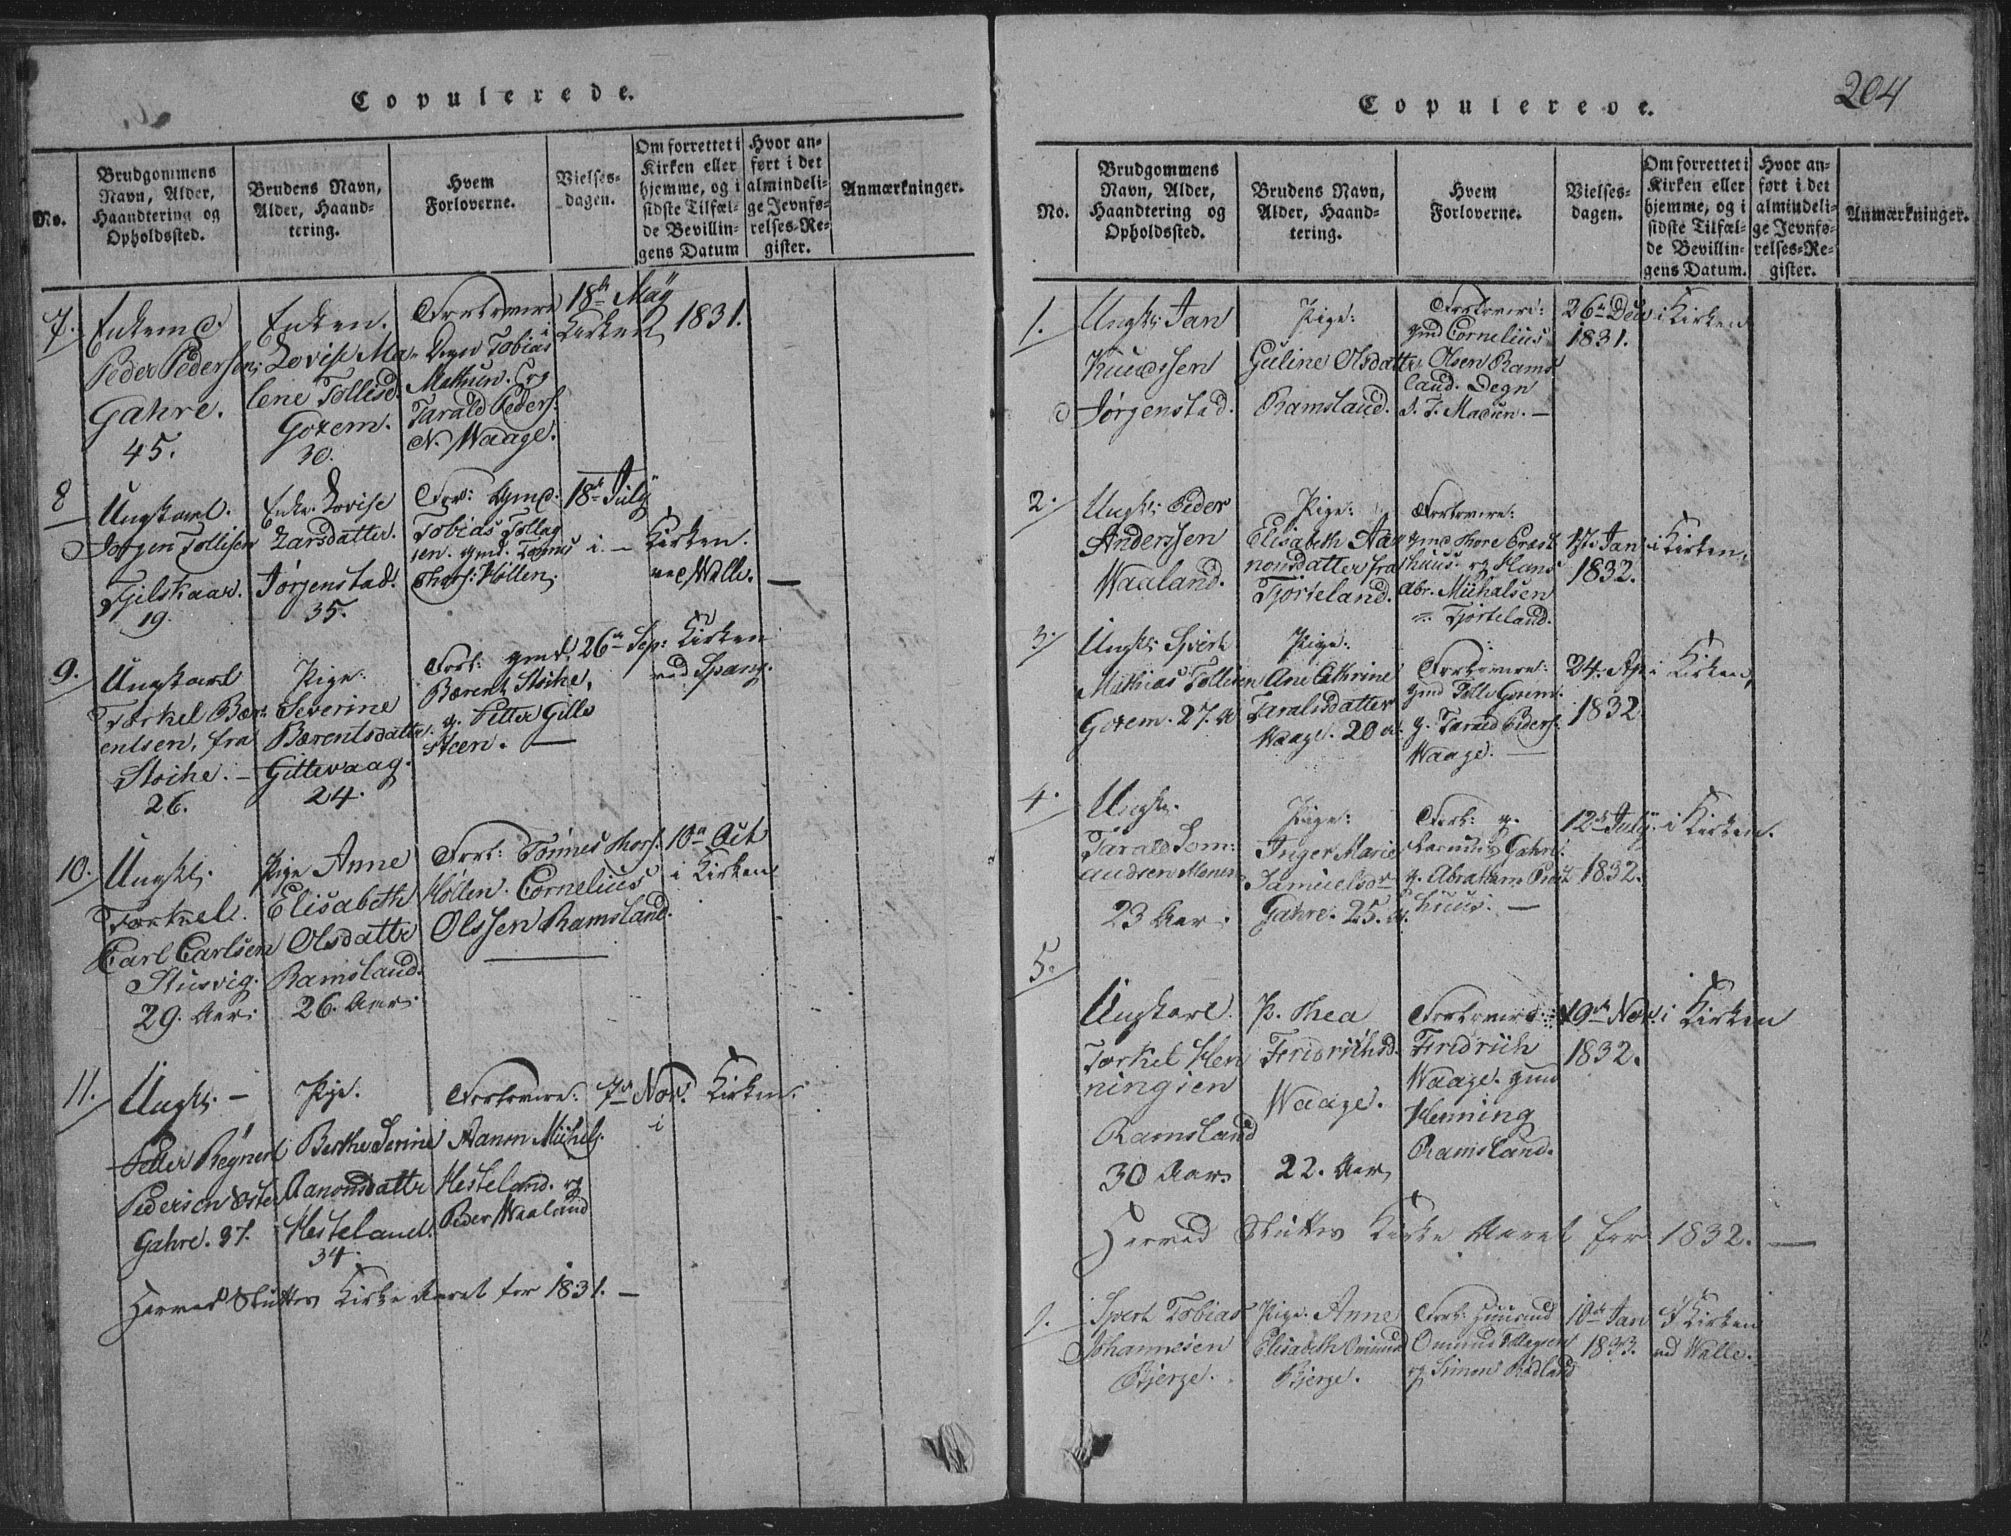 Copulerede.
No.
Brudgommens
Navn, Alder,
Haandtering og
Opholdssted.
Brudens Navn,
Alder, Haand-
tering.
Hvem
Forloverne.
Vielses-
dagen.
Om forrettet i
Kirken eller
hjemme, og i
sidste Tilfæl-
de Bevillin-
gens Datum
Hvor an-
ført i det
almindeli-
ge Jevnfø-
relses-Re-
gister.
Anmærkninger.
7.
Enkemd.
Peder Pedersen
Gahre.
45.
Enken.
Lovise Ma-
lene Tollisd.
Gorem.
30.
Forlovere
Degn Tobias
Tarald Peders.
N. Waage.
18de Maÿ
i Kirken 1831.
8
Ungkarl.
Jørgen Tollisen
Fjilskaar.
19.
Enke. Lovise
Larsdatter.
Jørgenstad.
35.
For: gmd:
Tobias Tollag
sen. gmd. Tønnes
Thors: Høllen.
18de Julÿ
i Kirken.
ved Walle.
9.
Ungkarl
Torkel Bær-
entsen, fra
Stoihe.
26.
Pige.
Severine
Bærentsdatter
Gittevaag.
24.
Forl: gmd.
Bærent Stoihe,
g. Petter Gille
Steen.
26de Sep: Kirken
ved Spang.
10.
Ungkl.
Torkel.
Carl Carlsen
Stusvig.
29. Aar.
Pige Anne
Elisabeth
Olsdatter
Ramsland.
26. Aar.
Forl: Tønnes Thors.
Høllen. Cornelius
Olssen Ramsland.
10de Oct
i Kirken
11.
Ungk:
Petter Regnert
Pedersen Øster
Gahre. 37.
Pige.
Berthe Serine
Aanonsdatter
Hesteland.
34.
Forlovere:
Aanon Michels.
Hesteland. og
Peder Waaland
7de Nov. i Kirken.
Herved Sluttes Kirke Aaret for 1831.
204
Copulerede.
No.
Brudgommens
Navn, Alder,
Haandtering og
Opholdssted.
Brudens Navn,
Alder, Haand-
tering.
Hvem
Forloverne.
Vielses-
dagen.
Om forrettet i
Kirken eller
hjemme, og i
sidste Tilfæl-
de Bevillin-
gens Datum.
Hvor an-
ført i det
almindeli-
ge Jevnfø-
relses-Re-
gister.
Anmærkninger.
1.
Ungk: Jan
Knudssen
Jørgenstad.
Pige:
Guline Olsdatter
Ramsland.
Forlovere:
gmd Cornelius
Olsen Rams
land. Degn
26de Dec i Kirken
1831.
2.
Ungk: Peder
Anderssen
Waaland.
Pige:
Elisabeth Aa
nonsdatter fra
Tjorteland.
Forlovere:
gmd Thore Præst
huus. og Hans
Abr. Michalsen
Tjorteland.
Jan i Kirken.
1832.
3.
Ungk: Sivert
Mathias Tollisen
Gorem. 27. A
Pige:
Ane Cathrine
Taralsdatter
Waage. 20 A.
Forlovere:
gmd Tolle Gorem.
g. Tarald Peders.
Waage.
24. Ap. i Kirken,
1832
4.
Ungk.
Tarald Tom:
Monen
23 Aar.
Pige:
Inger Marie
Samuelsdr
Gahre. 25. A.
Forl: g.
Rasmus Gahre.
g. Abraham Præst
huus.
12de Julÿ. i Kirken.
1832.
5.
Ungkarl.
Torkel Hen
ningsen
Ramsland
30 Aar.
P. Thea
Fridrichsd.
Waage.
22. Aar
Forlovere:
Fridrich
Waage. gmd
Henning
Ramsland.
19de Nov. i Kirken
1832.
Herved Sluttes Kirke Aaret for 1832.
1.
Sivert Tobias
Johannesen
Bjerge.
Pige: Anne
Elisabeth Omund
Bjerge.
Forl: Huusmd
Omund
og Simon Rødland
10de Jan i Kirken
1833. ved Walle.